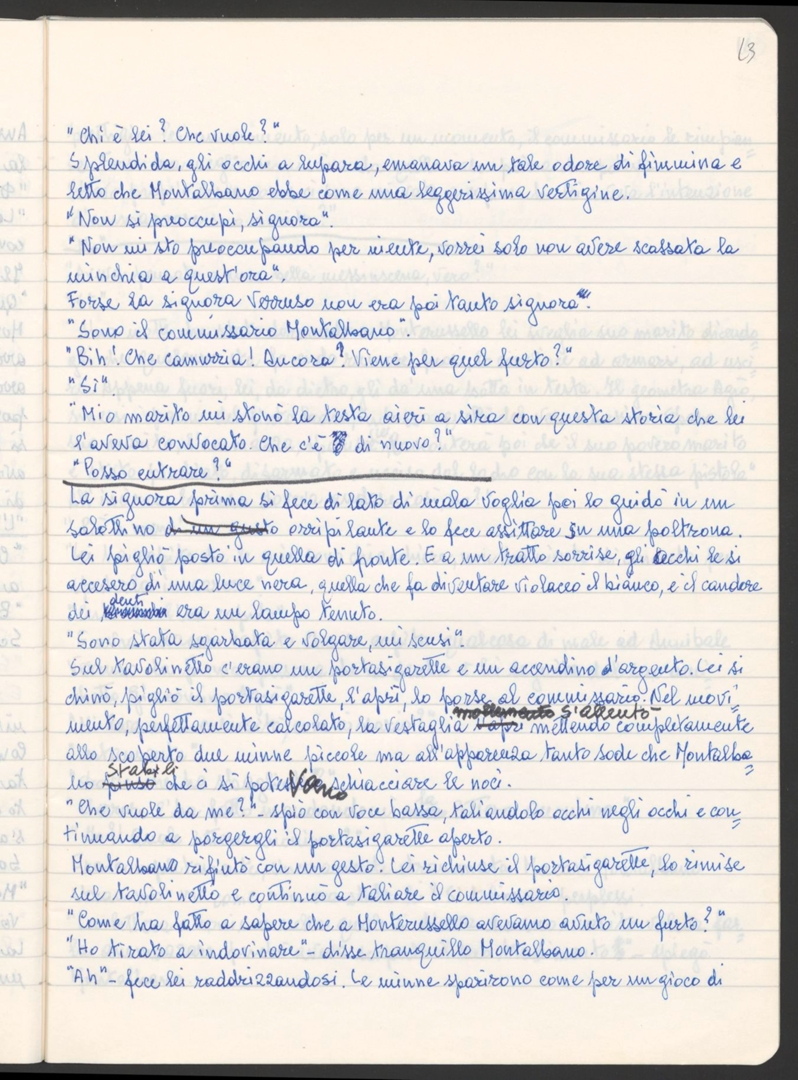 13
"Chi è lei? Che vuole?"
Splendida, gli occhi a lupara, emanava un tale odore di fimmina e
letto che Montalbano ebbe come una leggerissima vertigine.
"Non si preoccupi, signora".
"Non mi sto preoccupando per niente, vorrei solo non avere scassata la
minchia a quest'ora".
Forse la signora Verruso non era poi tanto signora".
"Sono il commissario Montalbano".
"Bih! Che camurria! Ancora? Viene per quel furto?"
"Sì"
"Mio marito mi stonò la testa aieri a sira con questa storia che lei
l'aveva convocato. Che c'è di nuovo?"
"Posso entrare?"
La signora prima si fece di lato di mala voglia poi lo guidò in un
salottino di un gusto orripilante e lo fece assittare in una poltrona.
Lei pigliò posto in quella di fronte. E a un tratto sorrise, gli occhi le si
accesero di una luce nera, quella che fa diventare violaceo il bianco, e il candore
dei denti era un lampo tenuto.
"Sono stata sgarbata e volgare, mi scusi".
Sul tavolinetto c'erano un portasigarette e un accendino d'argento. Lei si
chinò, pigliò il portasigarette, l'aprì, lo porse al commissario. Nel movi=
mento, perfettamente calcolato, la vestaglia mollemente s'allentò mettendo completamente
allo scoperto due minne piccole ma all'apparenza tanto sode che Montalba=
no pinsò stabilì che ci si potevano schiacciare le noci.
"Che vuole da me?" - spiò con voce bassa, taliandolo occhi negli occhi e con=
tinuando a porgergli il portasigarette aperto.
Montalbano rifiutò con un gesto. Lei richiuse il portasigarette, lo rimise
sul tavolinetto e continuò a taliare il commissario.
"Come ha fatto a sapere che a Monterussello avevamo avuto un furto?"
"Ho tirato a indovinare" - disse tranquillo Montalbano.
"Ah" - fece lei raddrizzandosi. Le minne sparirono come per un gioco di